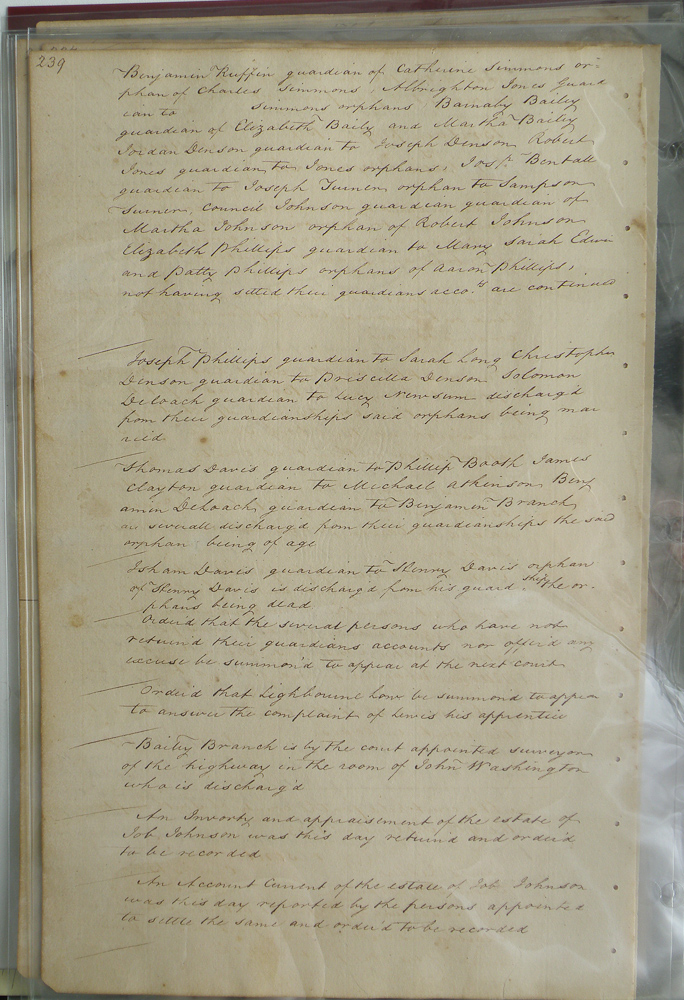 239
Benjamin Ruffin guardian of Catherine Simmons or=
phan of Charles Simmons, Albrighton Jones Guard
ian to Simmons orphans Barnaby Bailey
guardian of Elizabeth Baily and Martha Bailey
Jordan Denson guardian to Joseph Denson Robert
Jones guardian to Jones orphans, Jos. Bentall
guardian to Joseph Turner orphan to Sampson
Turner, Council Johnson guardian guardian of
Martha Johnson orphan of Robert Johnson
Elizabeth Phillips guardian to Mary Sarah Edwin
and Patty Phillips orphans of Aaron Phillips,
not having setled their guardians acco.ts are continued
Joseph Phillips guardian to Sarah Long Christopher
Denson guardian to Priscilla Denson Solomon
Deloach guardian to Lucy Newsum discharg'd
from their guardianships said orphans being mar
ried
Thomas Davis guardian to Phillip Booth James
Clayton guardian to Michael Atkinson Benj
amin Deloach guardian to Benjamin Branch
are severall discharg'd from their guardianships the said
orphan being of age
Isham Davis guardian to Henry Davis orphan
of Henry Davis is discharg'd from his guard.ship the or-
phans being dead
Order'd that the several persons who have not
return'd their guardians accounts nor offer'd any
excuse be summon'd to appear at the next court
Order'd that Lighbourne Low be summond to appear
to answer the complaint of Lewis his apprentice
Bailey Branch is by the court appointed surveyor
of the highway in the room of John Washington
who is discharg'd
An Invorty and appraisement of the estate of
Job Johnson was this day return'd and order'd
to be recorded
An Account Current of the estate of Job Johnson
was this day reported by the persons appointed
to settle the same and order'd to be recorded